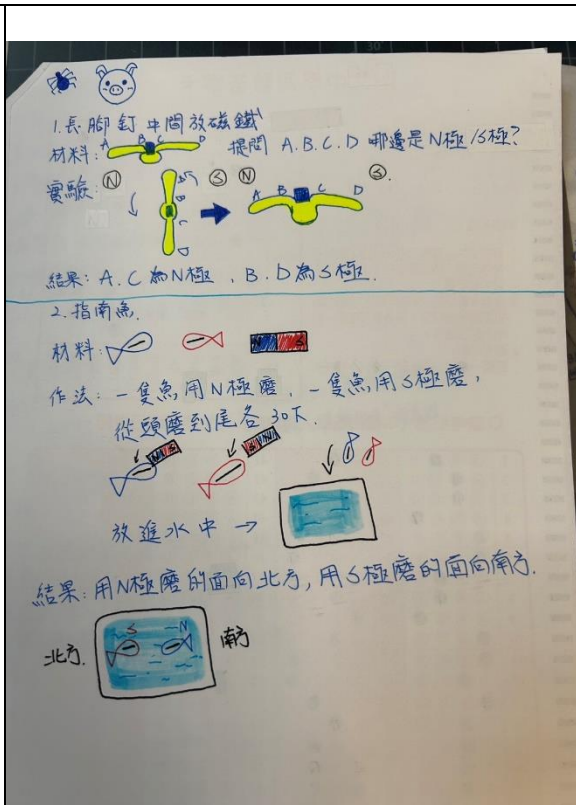 1. 長腳釘中間放磁鐵
材料: A B C D 提問 A.B.C.D 哪邊是N極/S極?
實驗: N A B C D S N A B C D S.
結果: A.C為N極、B.D為S極.
2. 指南魚.
材料: N S
作法: 一隻魚用N極磨、一隻魚用S極磨,
從頭磨到尾各30下.
放進水中→
結果: 用N極磨的面向北方, 用S極磨的面向南方.
S N
北方. 南方